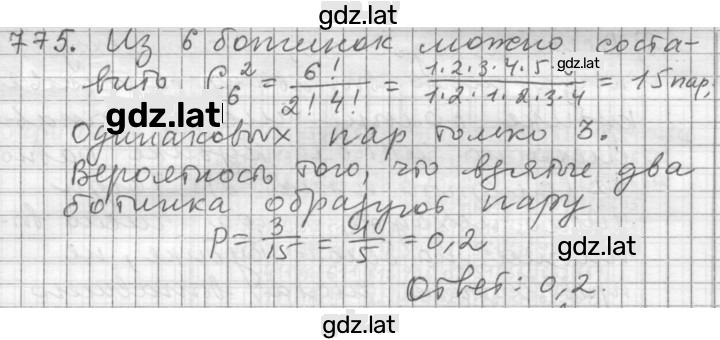 gdz.lat
775. Из 6 ботинок можно соста-
gdz.lat
вить C₆² = 6!/(2!4!) = (1·2·3·4·5·)/(1·2·1·2·3·4) = 15 пар,
gdz.lat
Одинаковых пар только 3.
Вероятность того, что взятые два
ботинка образуют пару
P = 3/15 = 1/5 = 0,2
gdz.lat
Ответ: 0,2.
gdz.lat